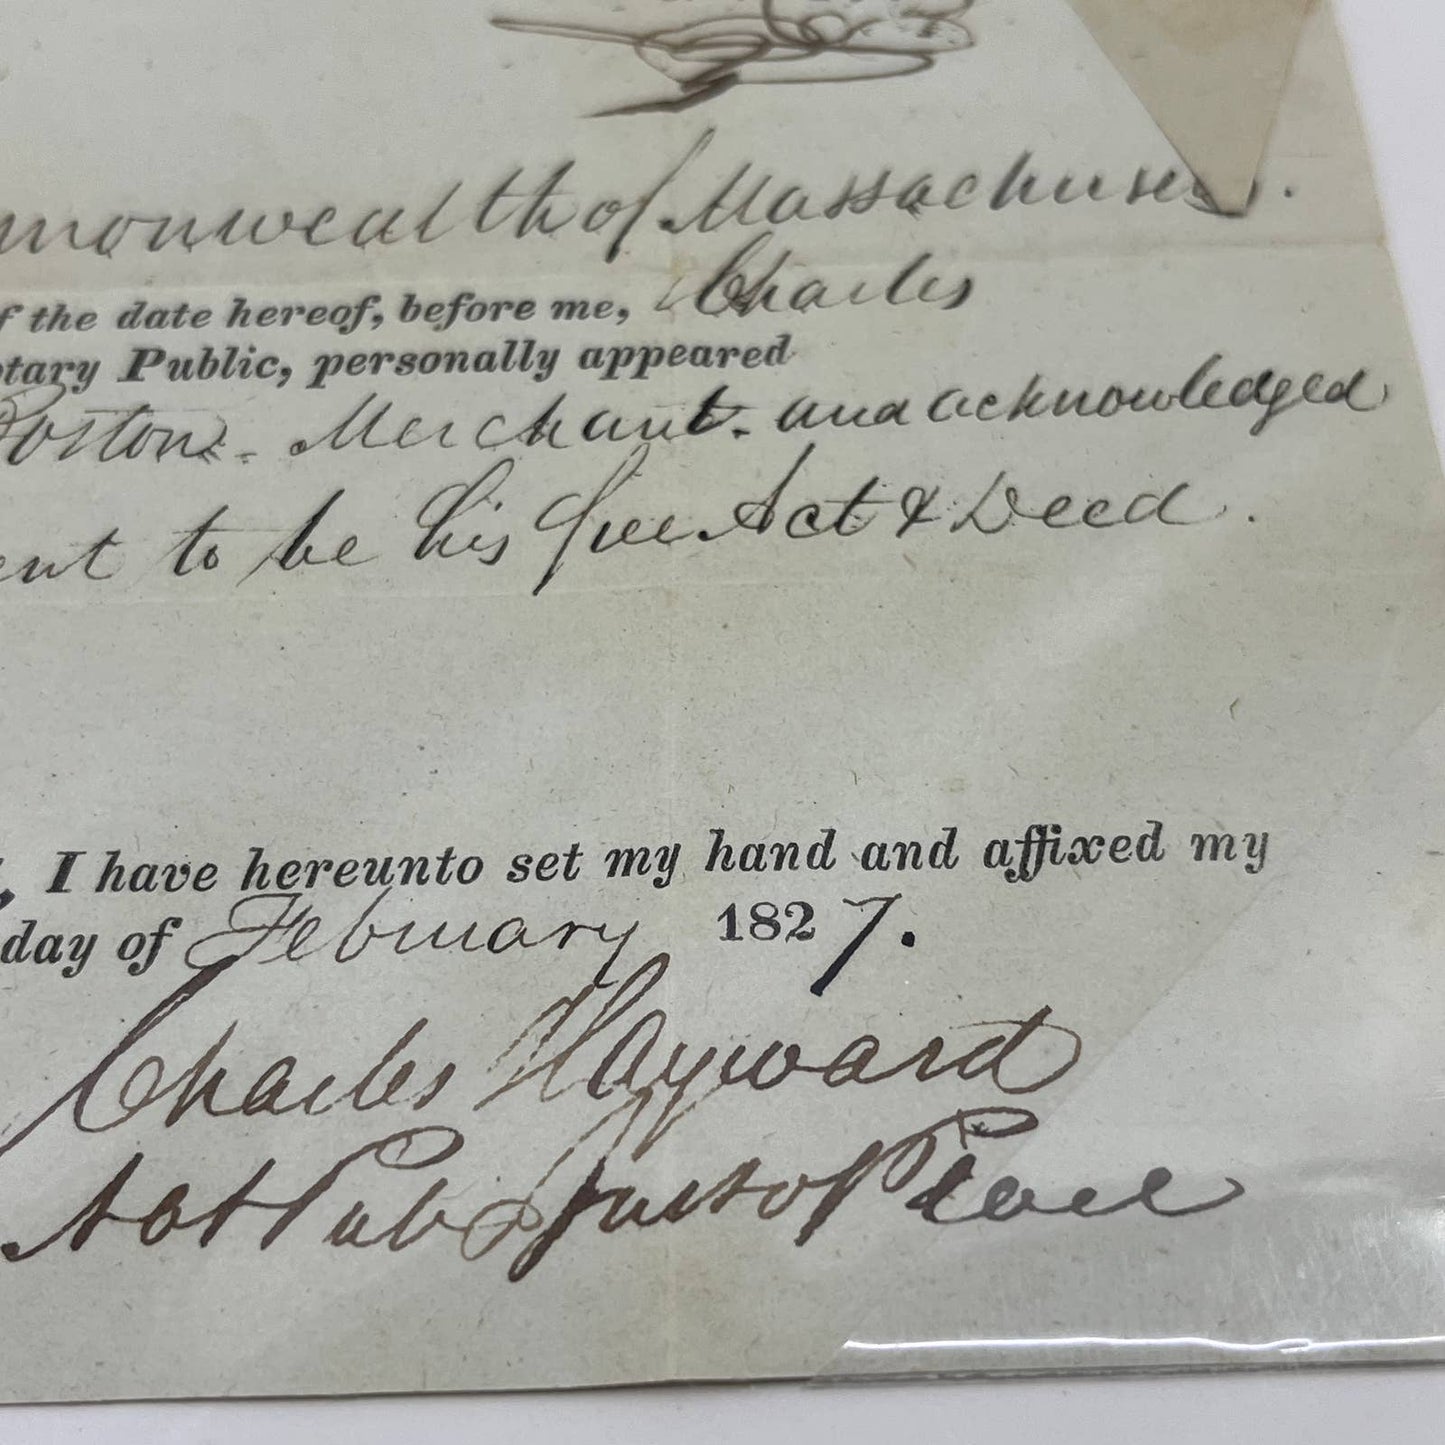 monwealth of Massachusetts.
f the date hereof, before me, Charles
otary Public, personally appeared
Boston. Merchant. and acknowledged
ent to be his free Act & Deed.
, I have hereunto set my hand and affixed my
day of February 1827.
Charles Hayward
Not Pub & Just of Peace